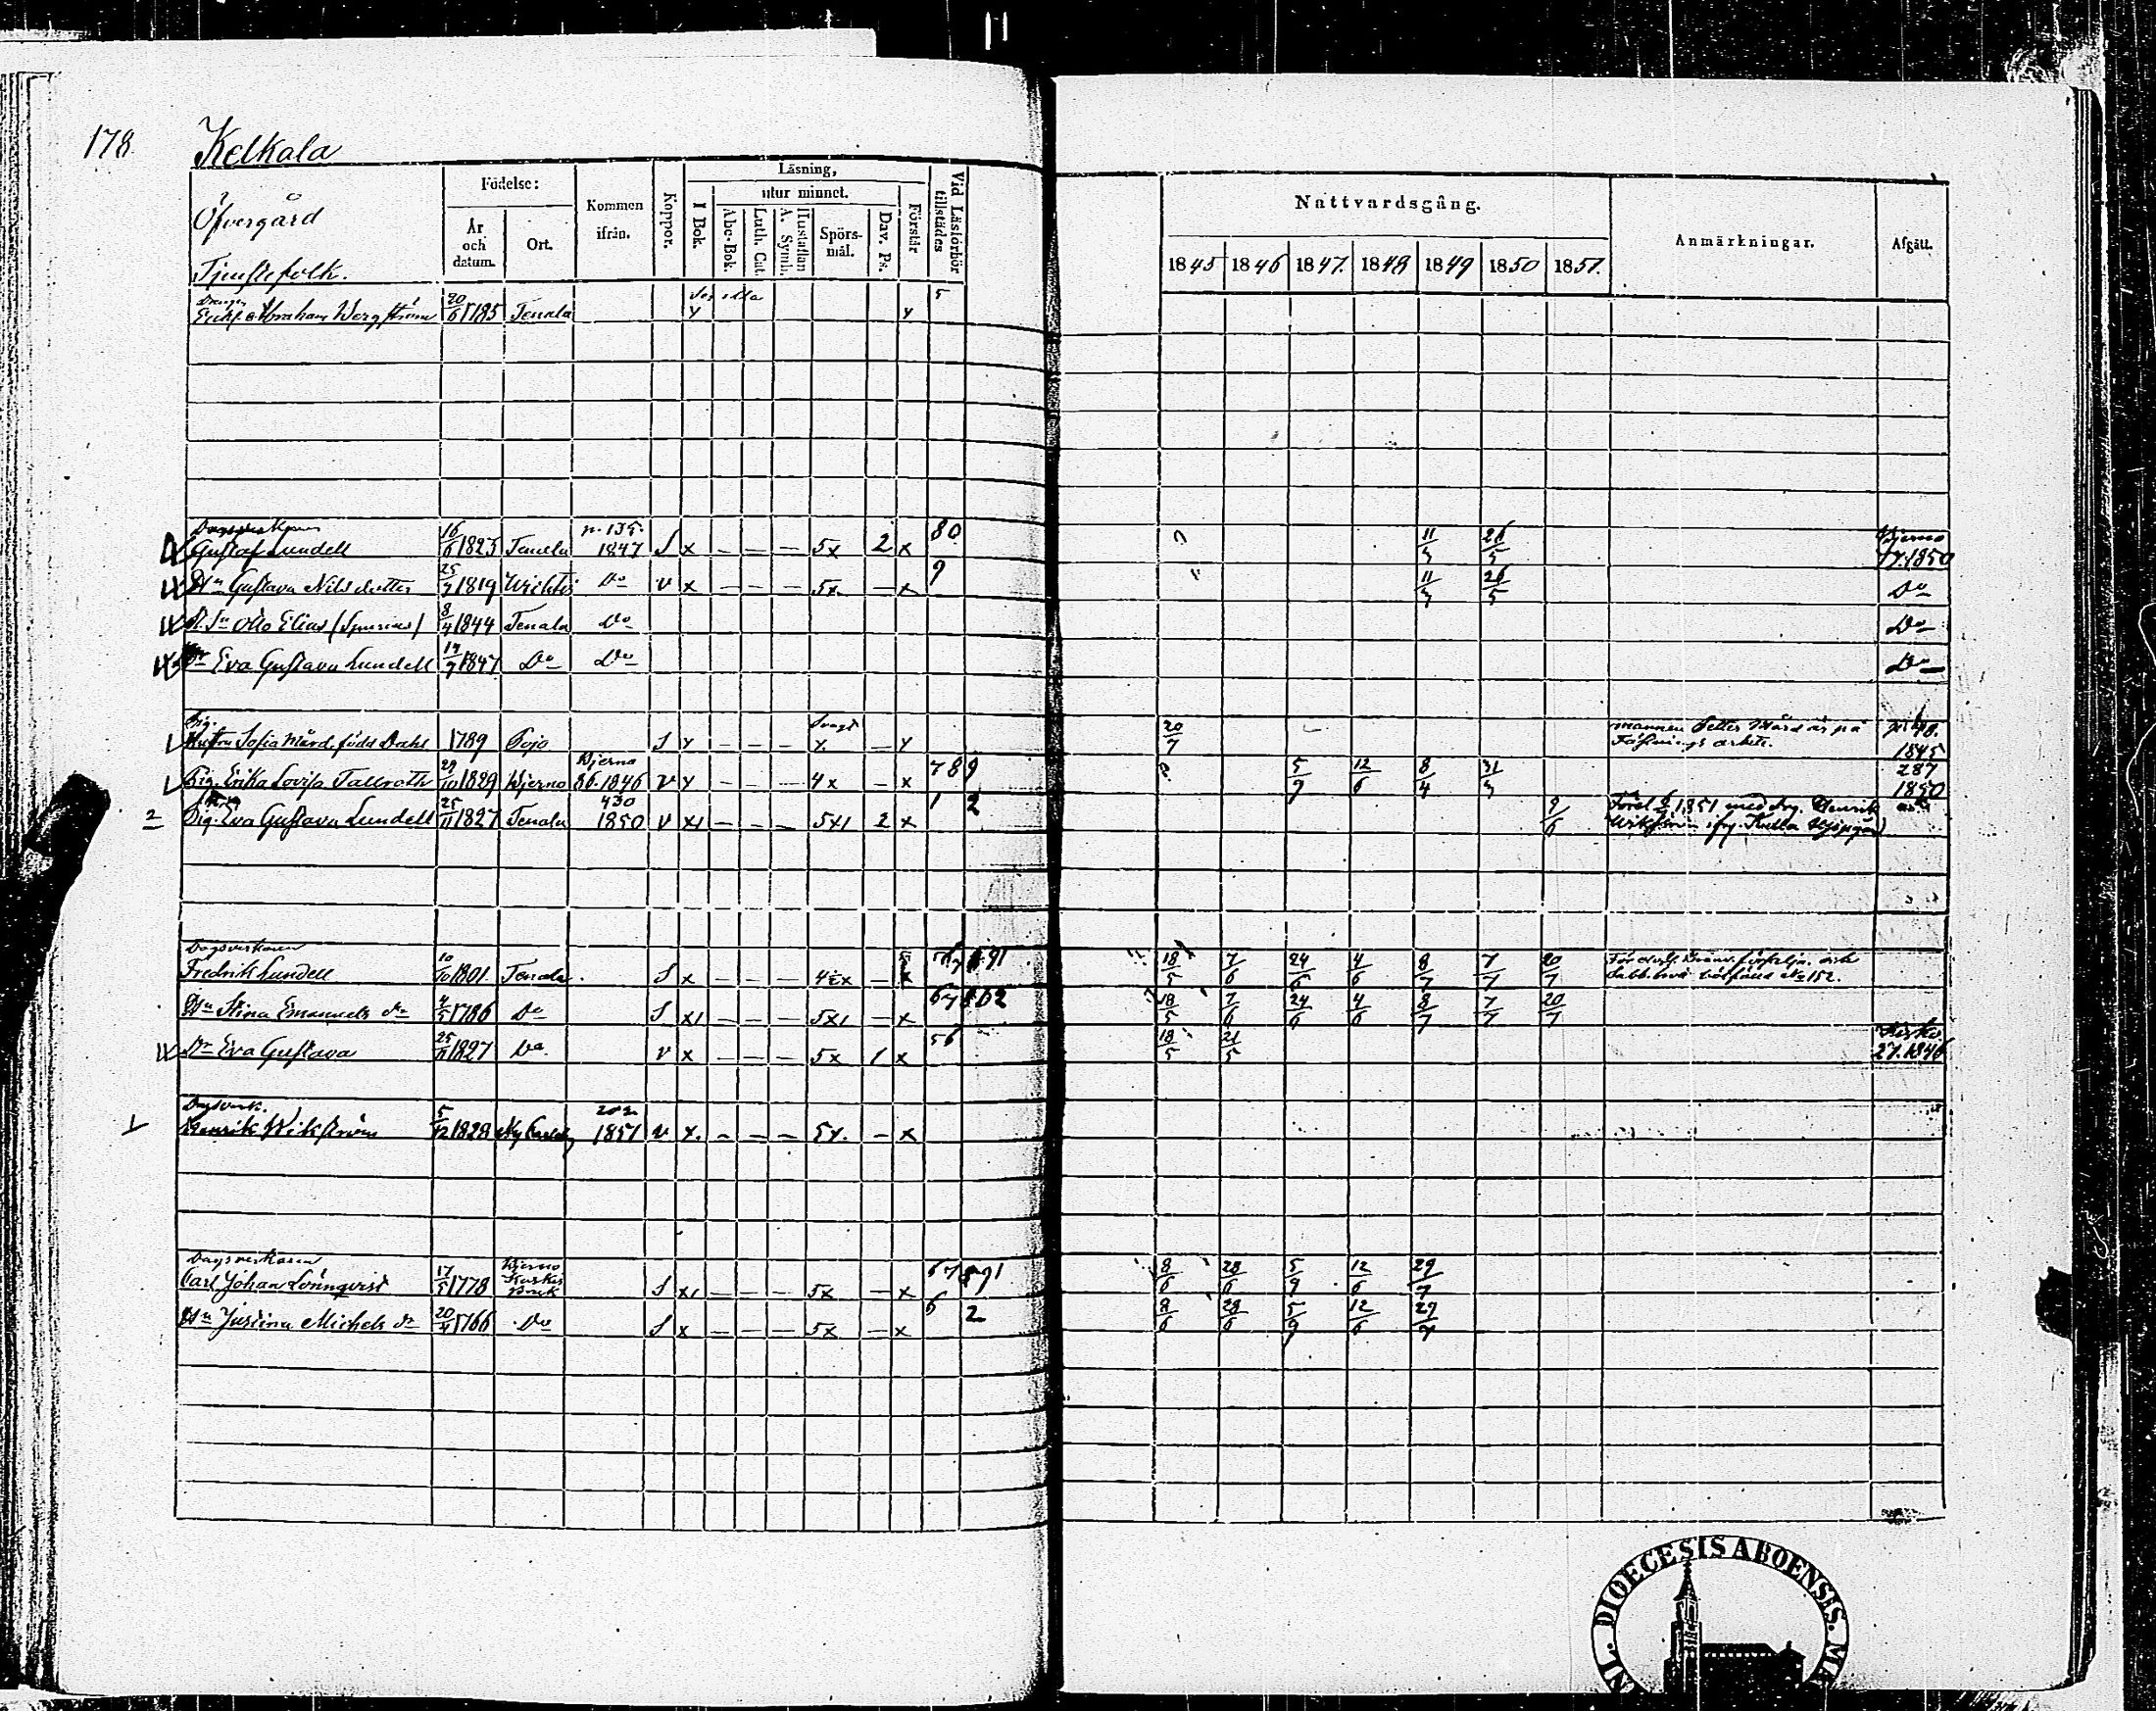 178.
Kelkala
Öfvergård
Tjenstefolk.
Födelse:
År och datum.
Ort.
Kommen ifrån.
Koppor.
Läsning,
I Bok.
utur minnet.
Abc-Bok.
Luth. Cat.
Hustaflan A. Symb.
Spörsmål.
Dav. Ps.
Förstår
Vid Läsförhör tillstädes
Nattvardsgång.
1845 1846 1847. 1848 1849 1850 1851.
Anmärkningar.
Afgått.
Abraham Bergström 20/6 1785 Tenala y y 5
Gustaf Lundell 16/6 1823 Tenala p. 135. 1847 S x – – – 5x 2 x 80 26/5 Bjerno 17.1850
Hu Gustava Nilsdotter 25/7 1819 Wichtis Do v x – – – 5x – x 9 26/5 Do
Otto Elias (Spurius) 8/4 1844 Tenala Do Do
Dr Eva Gustava Lundell 1847 Do Do Do
Sofia Mård, född Dahl 1789 Pojo S y – – – Svagt y. – y 20/7 mannen Petter Mård är på Fästnings arbete. 1845
Pig. Erika Lovisa Tallroth 29/10 1829 Bjerno Bjerno 86.1846 v y – – – 4x – x 789 5/9 12/6 8/4 287 1850
Pig. Eva Gustava Lundell 25/11 1827 Tenala 430 1850 v x1 – – – 5x1 2 x 1 2 9/6 1851 med drg. Henrik Wikström
Dagsverkaren
Fredrik Lundell 10/10 1801. Tenala. S x – – – x 18/5 7/6 24/6 4/6 8/7 7/7 20/7 No 152.
Hu Stina Emanuels dr 4/5 1786 Do S x1 – – – 5x1 – x 18/5 7/6 24/6 4/6 8/7 7/7 20/7
Dr Eva Gustava 25/11 1827 Do. v x – – – 5x 1 x 56 18/5 21/5 27.1846
Dagsverk.
Henrik Wikström 5/12 1828 1851 v x. – – – 5x. – x
Dagsverkaren
Carl Johan Lönnqvist 17/5 1778 Bjerno Koskis Bruk S x1 – – – 5x – x 8/6 28/6 5/9 12/6 29/7
Hu Justina Michels dr 20/4 1766 Do S x – – – 5x – x 6 2 8/6 28/6 5/9 12/6 29/7
DIOECESIS ABOENSIS.